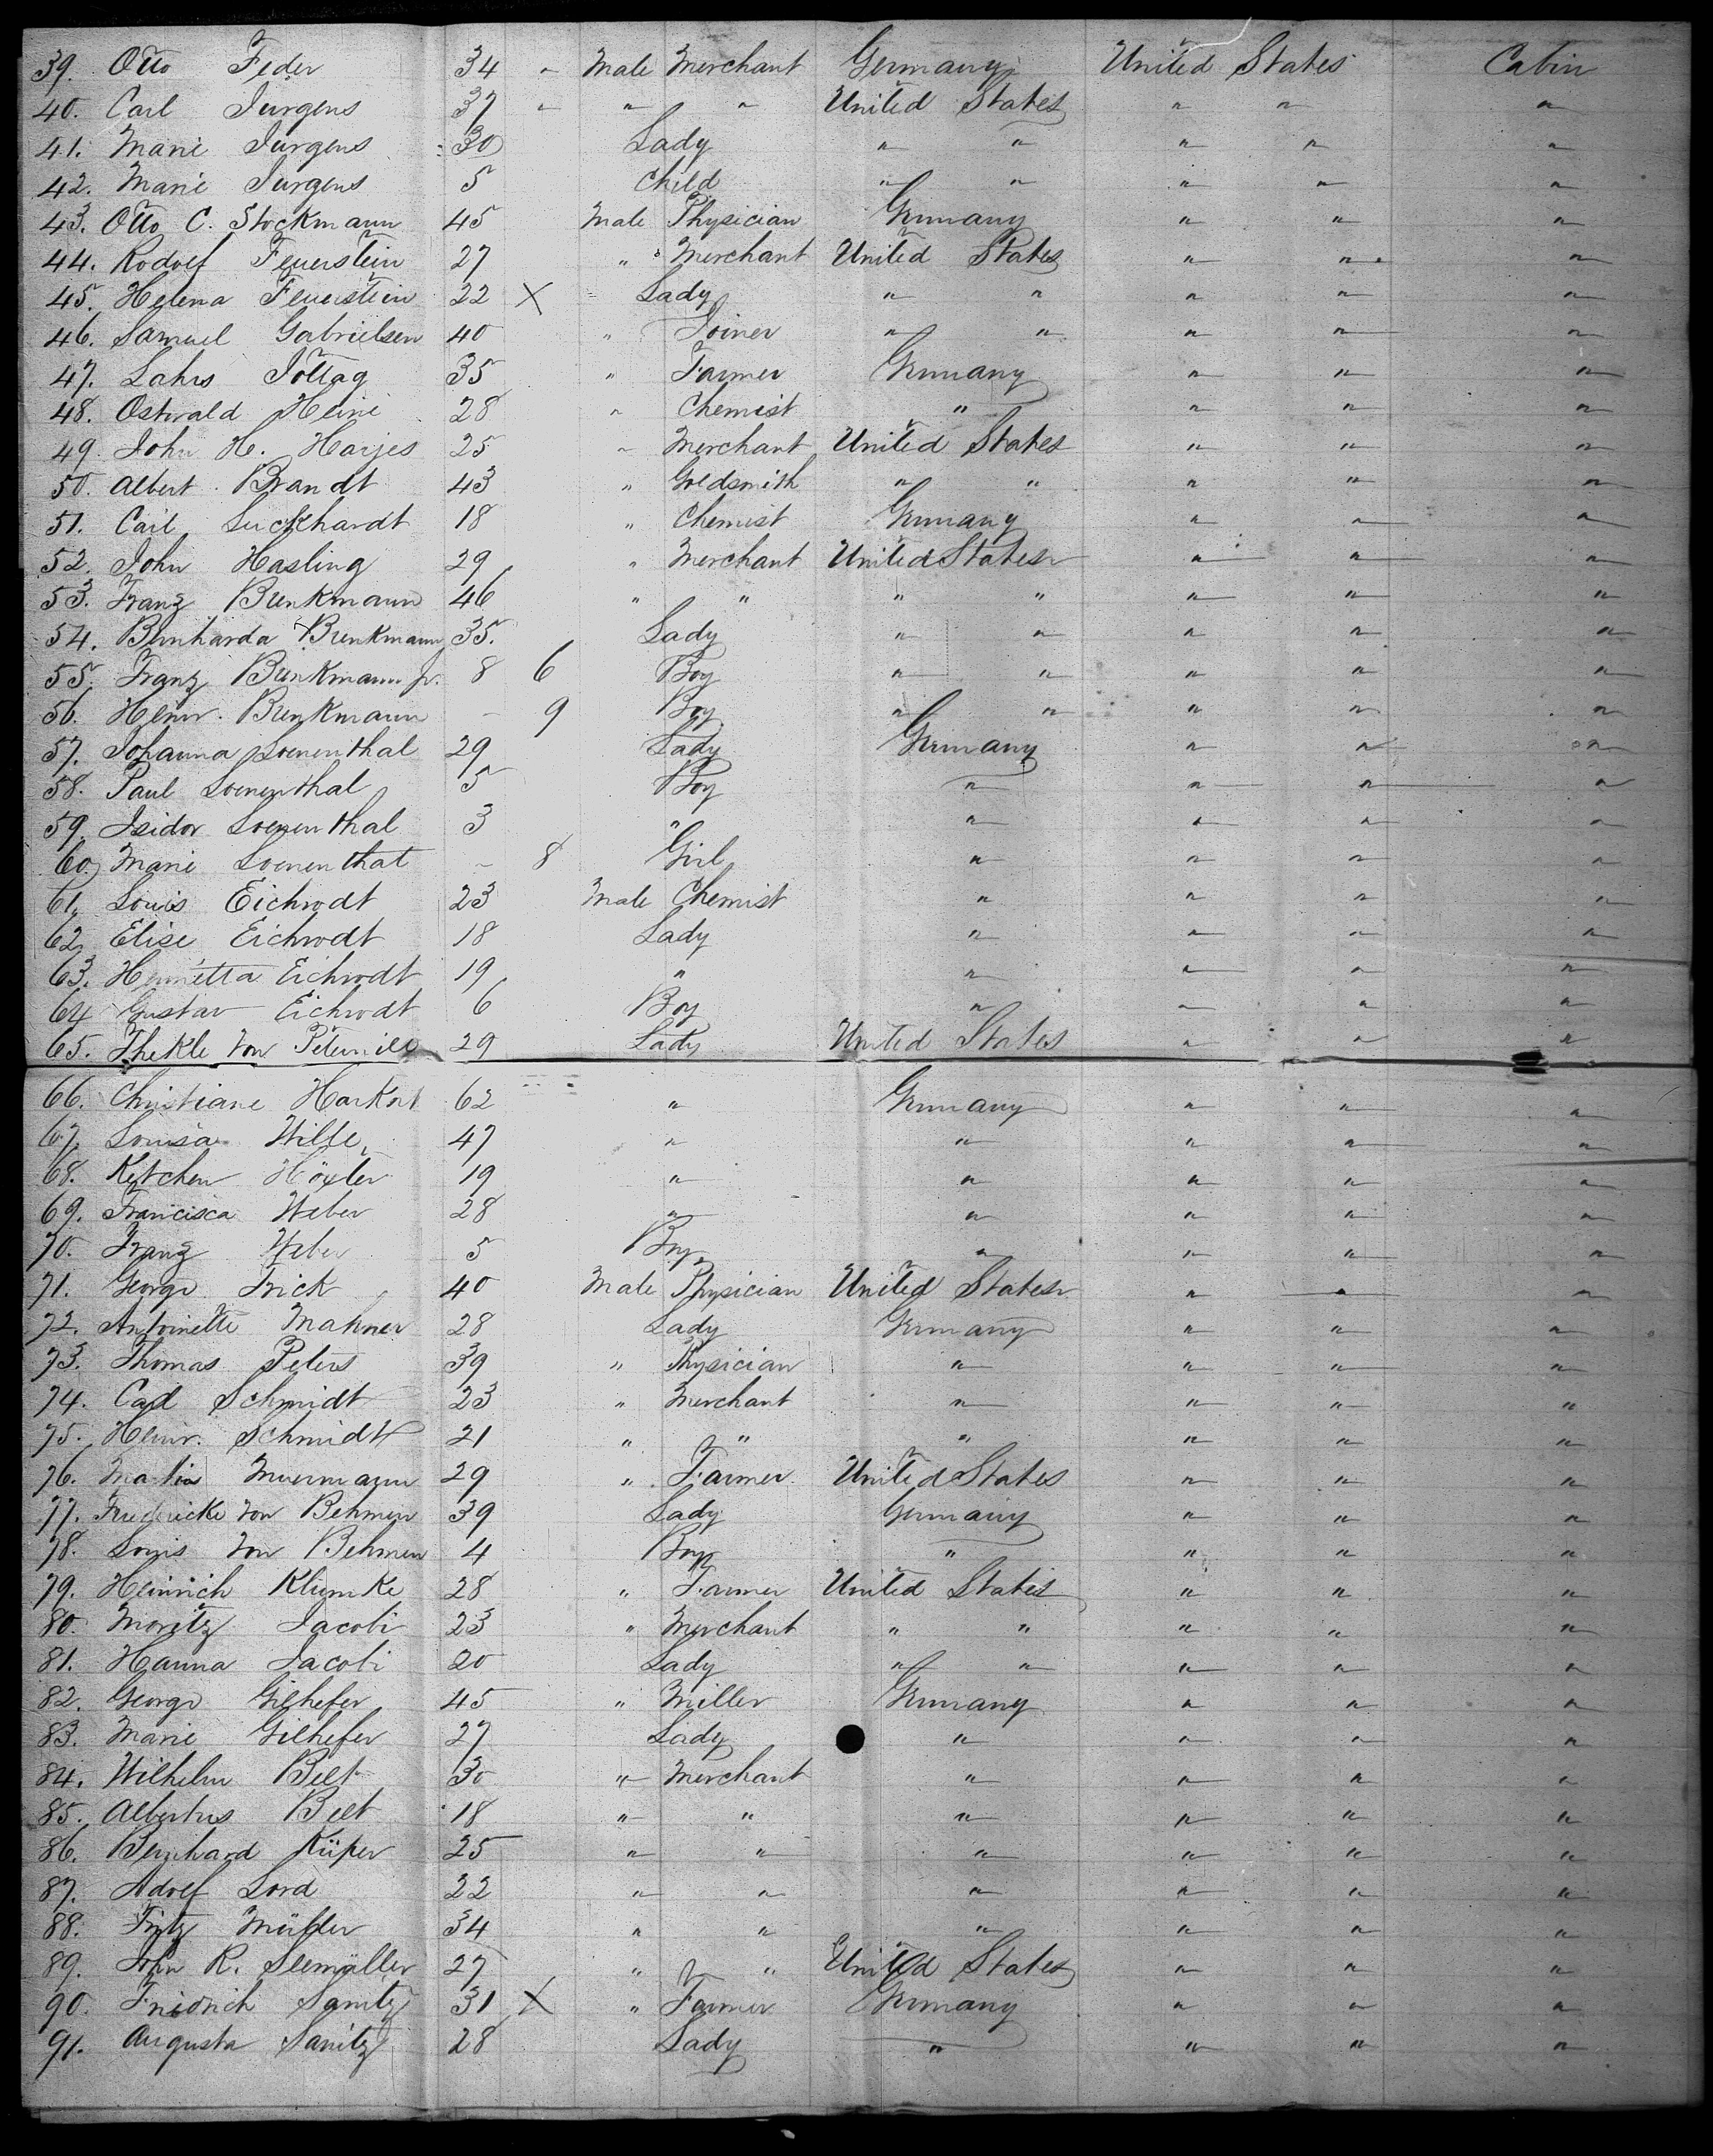 39. Otto Feder 34 " Male Merchant Germany United States Cabin
40. Carl Jurgens 37 " " " United States " " "
41. Marie Jurgens 30 Lady " " " " "
42. Marie Jurgens 5 Child " " " " "
43. Otto C. Stockmann 45 Male Physician Germany " " "
44. Rodolf Feuerstein 27 " Merchant United States " " "
45. Helena Feuerstein 22 X " Lady " " " " "
46. Samuel Gabrielsen 40 " Joiner " " " " "
47. Lahrs Jottag 35 " Farmer Germany " " "
48. Ostwald Heine 28 " Chemist " " " "
49. John H. Harjes 25 " Merchant United States " " "
50. Albert Brandt 43 " Goldsmith " " " " "
51. Carl Luckhardt 18 " Chemist Germany " " "
52. John Hasling 29 " Merchant United States " " "
53. Franz Brinkmann 46 " " " " " " "
54. Bernharda Brinkmann 35. Lady " " " " "
55. Franz Brinkmann Jr. 8 6 Boy " " " " "
56. Heinr. Brinkmann - 9 Boy " " " " "
57. Johanna Loewenthal 29 Lady Germany " " "
58. Paul Loewenthal 5 Boy " " " "
59. Isidor Loewenthal 3 " " " " "
60. Marie Loewenthal - 8 Girl " " " "
61. Louis Eichrodt 23 Male Chemist " " " "
62. Elise Eichrodt 18 Lady " " " "
63. Henrietta Eichrodt 19 " " " " "
64 Gustav Eichrodt 6 Boy " " " "
65. Thekle von 29 Lady United States " " "
66. Christiane Harkort 62 " Germany " " "
67. Louisa Wille 47 " " " " "
68. Ketchen Höxter 19 " " " " "
69. Francisca Weber 28 " " " " "
70. Franz Weber 5 Boy " " " "
71. George Frick 40 Male Physician United States " " "
72. Antoinette Mahner 28 Lady Germany " " "
73. Thomas Peters 39 " Physician " " " "
74. Carl Schmidt 23 " Merchant " " " "
75. Heinr. Schmidt 21 " " " " " "
76. Martin Muermann 29 " Farmer United States " " "
77. Fredericke von Behmen 39 Lady Germany " " "
78. Louis von Behmen 4 Boy " " " "
79. Heinrich Klumke 28 " Farmer United States " " "
80. Moritz Jacobi 23 " Merchant " " " " "
81. Hanna Jacobi 20 Lady " " " " "
82. George Gilhefer 45 " Miller Germany " " "
83. Marie Gilhefer 27 Lady " " " "
84. Wilhelm Belt 30 " Merchant " " " "
85. Albertus Belt 18 " " " " " "
86. Bernhard Küper 25 " " " " " "
87. Adolf Lord 22 " " " " " "
88. Fritz Müller 34 " " " " " "
89. John R. Seemüller 27 " " United States " " "
90. Friedrich Sanitz 31 X " Farmer Germany " " "
91. Augusta Sanitz 28 Lady " " " "